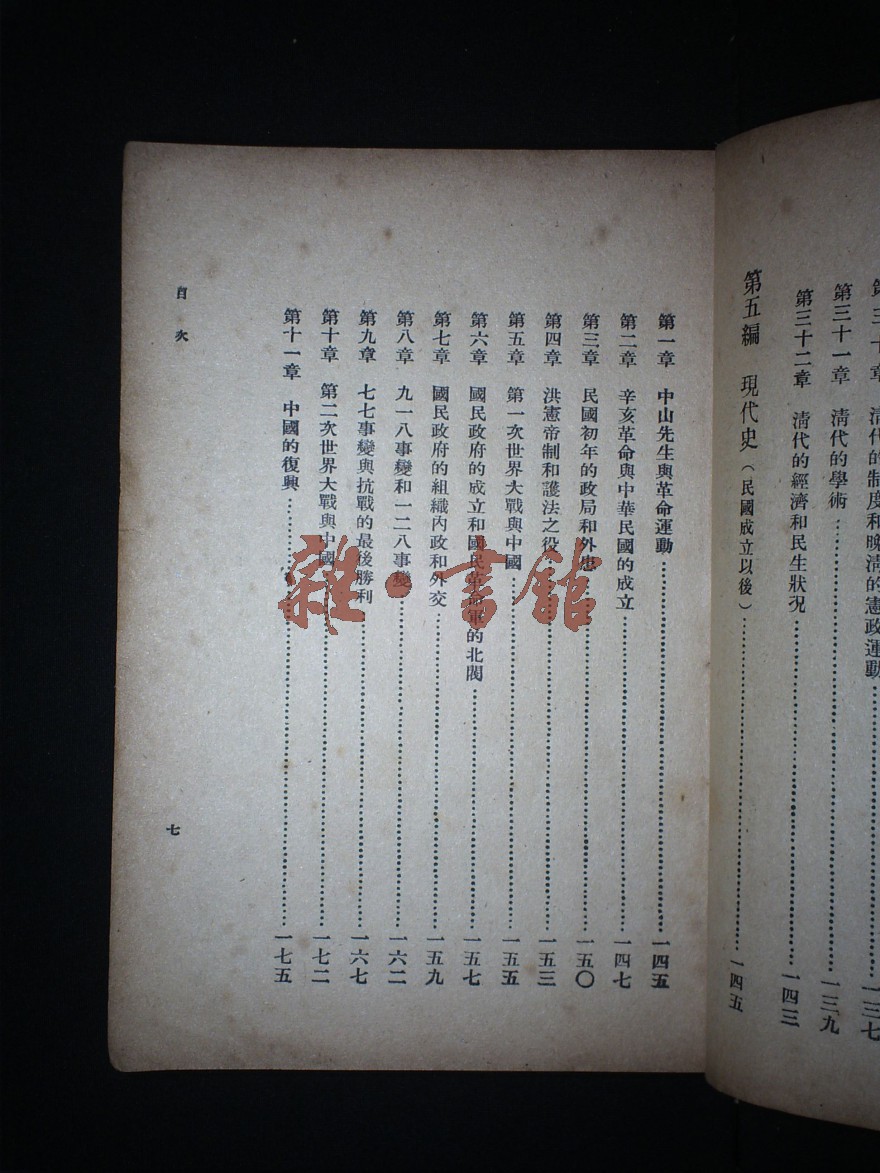 第三十章 清代的制度和晚清的憲政運動…………一三七
第三十一章 清代的學術…………一三九
第三十二章 清代的經濟和民生狀況…………一四三
第五編 現代史（民國成立以後）…………一四五
第一章 中山先生與革命運動…………一四五
第二章 辛亥革命與中華民國的成立…………一四七
第三章 民國初年的政局和外患…………一五〇
第四章 洪憲帝制和護法之役…………一五三
第五章 第一次世界大戰與中國…………一五五
第六章 國民政府的成立和國民革命軍的北閥…………一五七
第七章 國民政府的組織內政和外交…………一五九
第八章 九一八事變和一二八事變…………一六二
第九章 七七事變與抗戰的最後勝利…………一六七
第十章 第二次世界大戰與中國…………一七二
第十一章 中國的復興…………一七五
目次
七
雜·書館